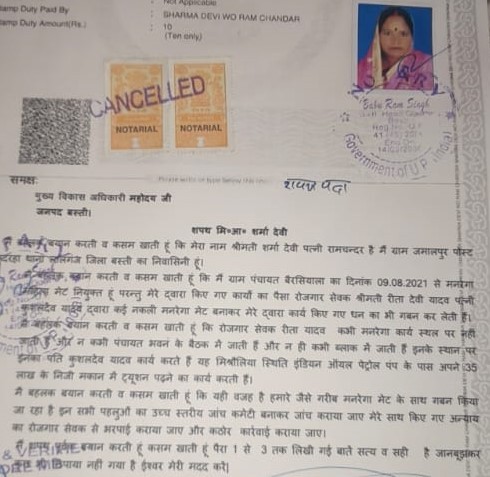 Stamp Duty Paid By
: SHARMA DEVI WO RAM CHANDAR
Stamp Duty Amount(Rs.)
: 10
(Ten only)
CANCELLED
NOTARIAL
NOTARIAL
Babu Ram Singh
Government of U.P.
शपथ पत्र
समक्ष:
मुख्य विकास अधिकारी महोदय जी
जनपद बस्ती।
शपथ मि०आ० शर्मा देवी
बयान करती व कसम खाती हूं कि मेरा नाम श्रीमती शर्मा देवी पत्नी रामचन्दर है मैं ग्राम जमालपुर पोस्ट
थाना जिला बस्ती का निवासिनी हूं।
बयान करती व कसम खाती हूं कि मैं ग्राम पंचायत बैरसियाला का दिनांक 09.08.2021 से मनरेगा
मेट नियुक्त हूं परन्तु मेरे द्वारा किए गए कार्यों का पैसा रोजगार सेवक श्रीमती रीता देवी यादव पत्नी
कुशलदेव यादव द्वारा कई नकली मनरेगा मेट बनाकर मेरे द्वारा कार्य किए गए धन का भी गबन कर लेती हैं।
मैं बहलक बयान करती व कसम खाती हूं कि रोजगार सेवक रीता यादव कभी मनरेगा कार्य स्थल पर नहीं
जाती हैं और न कभी पंचायत भवन के बैठक में जाती हैं और न ही कभी ब्लाक में जाती हैं इनके स्थान पर
इनका पति कुशलदेव यादव कार्य करते हैं यह मिश्रौलिया स्थिति इंडियन ऑयल पेट्रोल पंप के पास अपने 35
लाख के निजी मकान में ट्यूशन पढ़ने का कार्य करती हैं।
मैं बहलक बयान करती व कसम खाती हूं कि यही वजह है हमारे जैसे गरीब मनरेगा मेट के साथ गबन किया
जा रहा है इन सभी पहलुओं का उच्च स्तरीय जांच कमेटी बनाकर जांच कराया जाए मेरे साथ किए गए अन्याय
का रोजगार सेवक से भरपाई कराया जाए और कठोर कार्रवाई कराया जाए।
मैं शपथ बयान करती हूं कसम खाती हूं पैरा 1 से 3 तक लिखी गई बाते सत्य व सही है जानबूझकर
छिपाया नहीं गया है ईश्वर मेरी मदद करें|